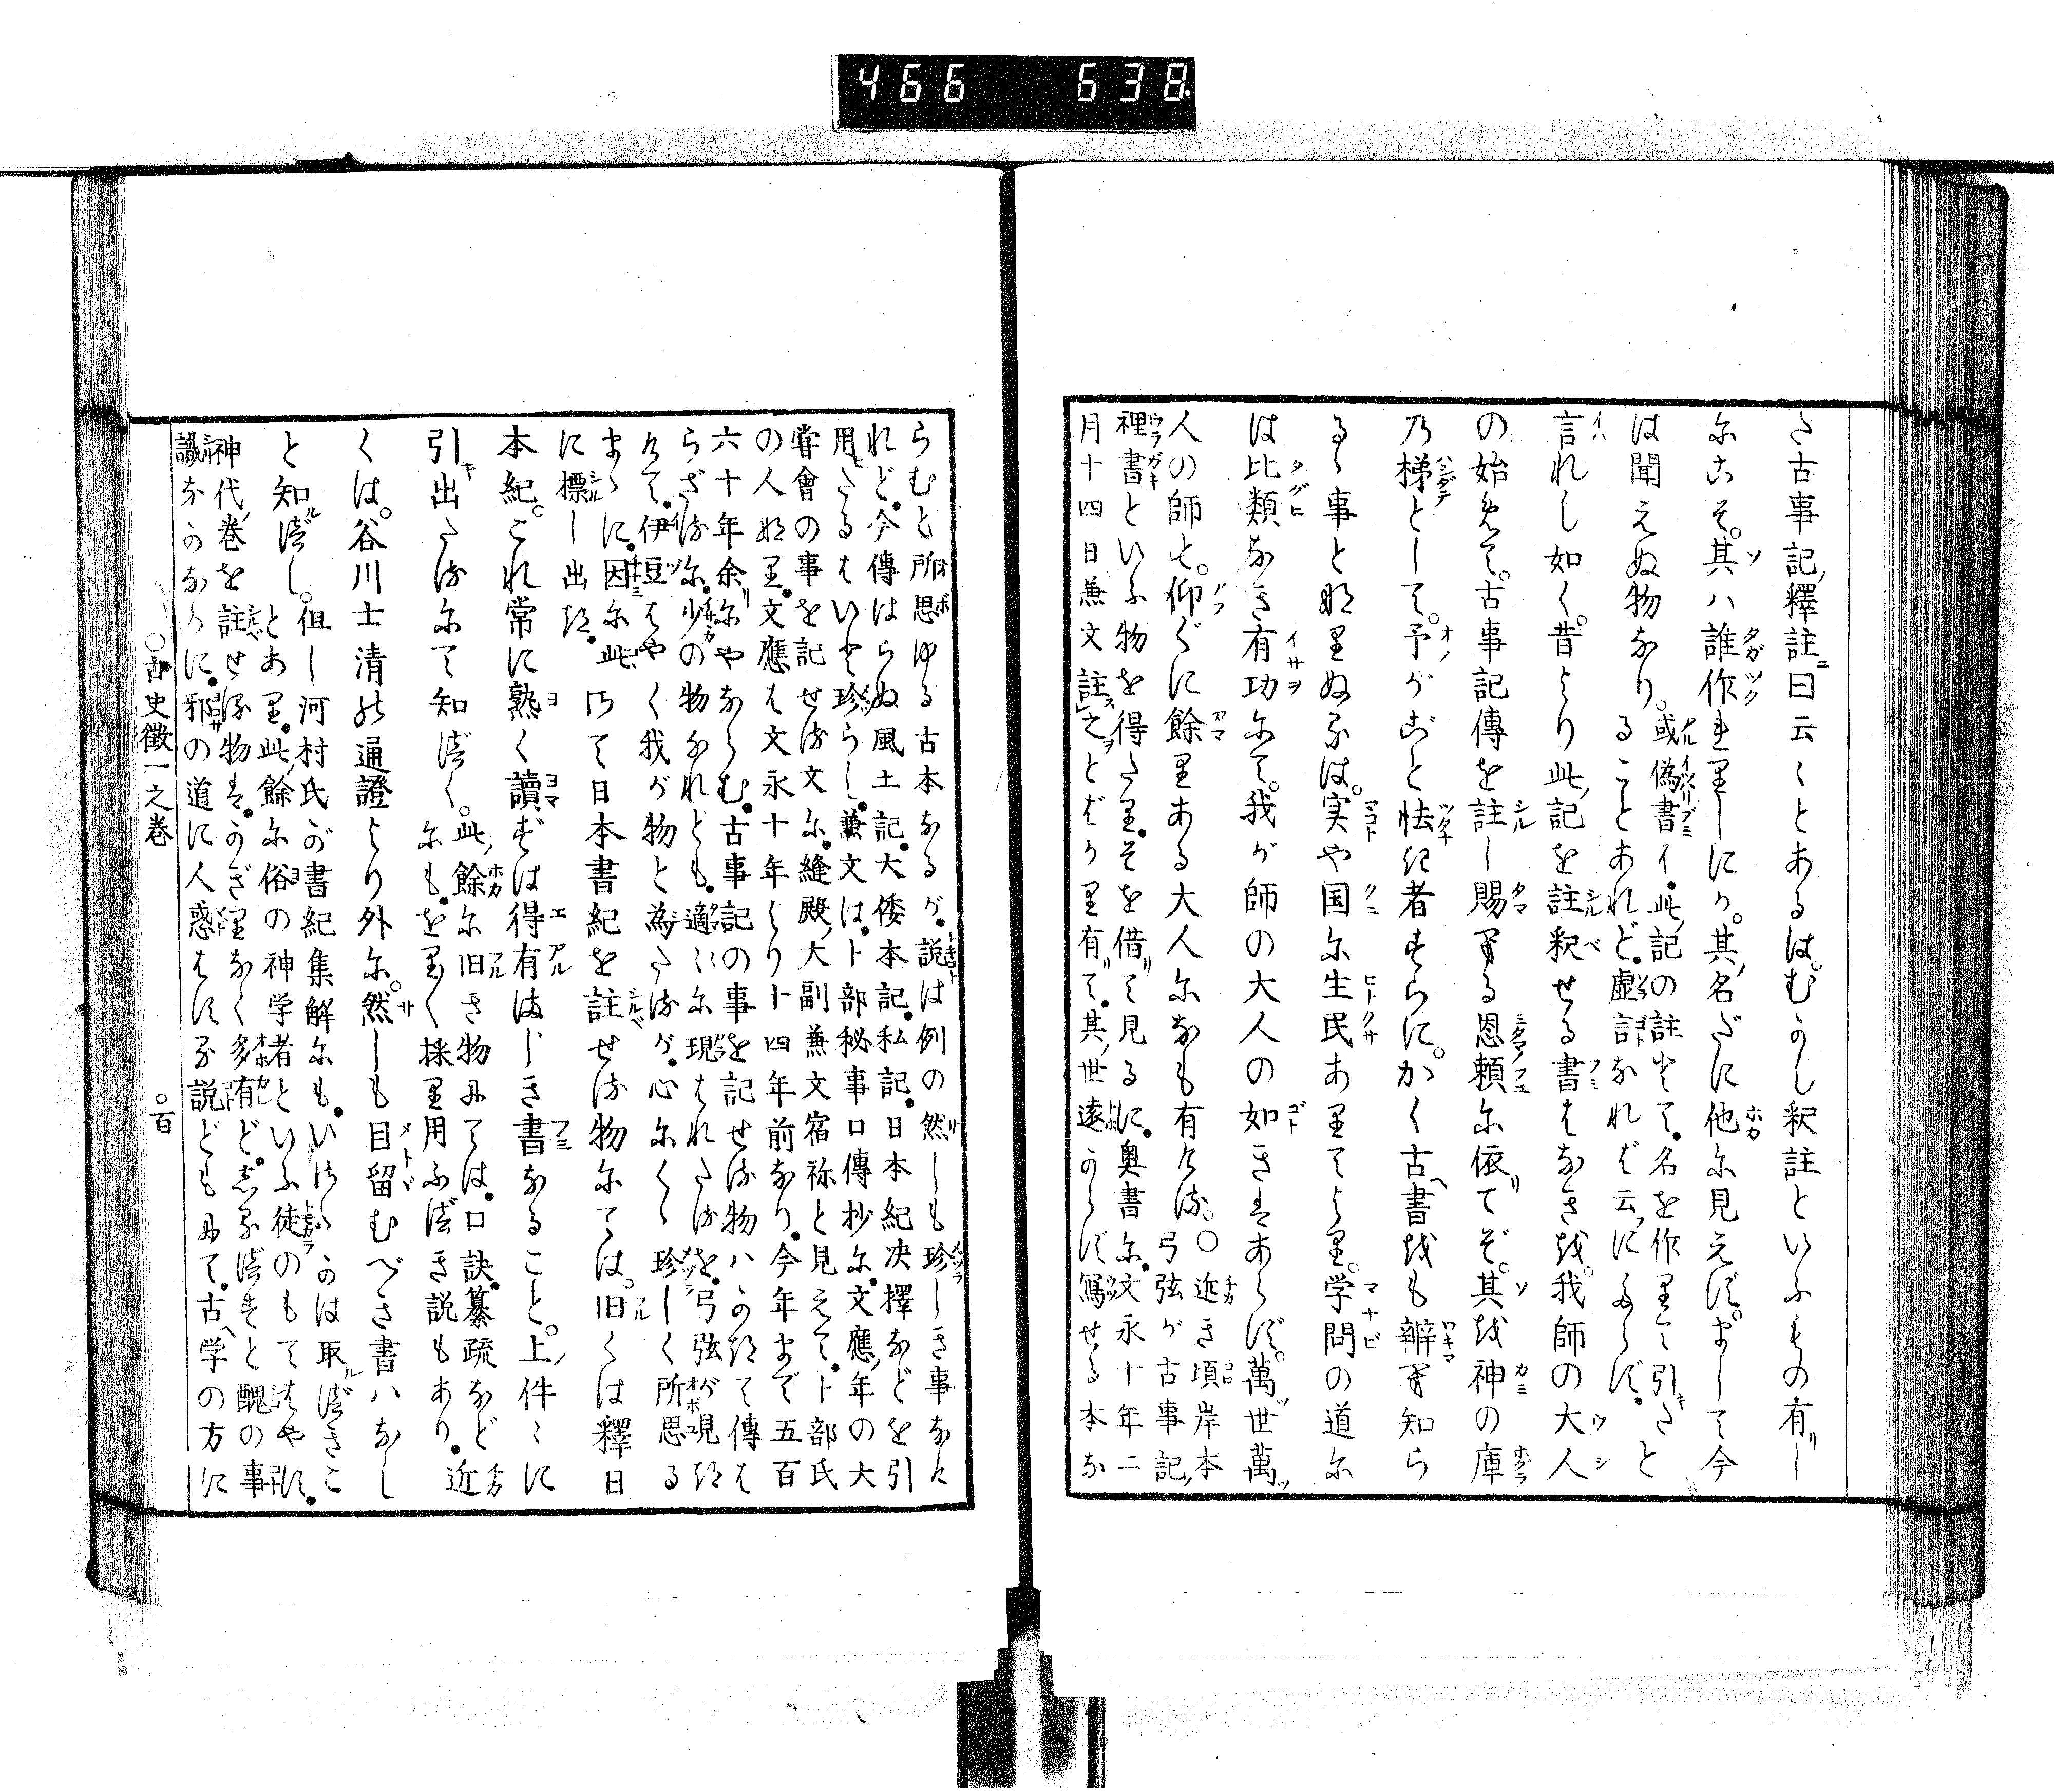 466 638
さ古事記ノ釋註ニ曰云くとあるは。むかし釈註といふもの有リし
にこそ。其ハ誰作れりしにか。其ノ名だに他に見えず。まして今
は聞えぬ物なり。或ル偽書イ。此ノ記の註とて。名を作りて引キさと
ることあれど。虚言なれば云フに足らず。
言れし如く。昔より此ノ記を註釈せる書はなきを。我師の大人
の始めて。古事記傳を註し賜へる恩頼に依リてぞ。其を神の庫
乃梯として。予がごと怯き者すらに。かく古ヘ書をも辨へ知ら
るゝ事となりぬるは。実や国に生民ありてより。学問の道に
は比類なき有功にて。我が師の大人の如きはあらず。萬ツ世萬ツ
人の師と。仰ぐに餘りある大人になも有ける。○近き頃岸本
弓弦が古事記ノ
裡書といふ物を得たり。そを借リて見るに。奥書に。文永十年二
月十四日兼文註ス之ヲとばかり有リて。其ノ世遠からず寫せる本な
らむと所思ゆる古本なるが。説は例の然リしも珍しき事なけ
れど。今傳はらぬ風土記。大倭本記。私記。日本紀决擇などを引
用ヒたるはいと珍らし。兼文は。卜部秘事口傳抄に。文應ノ年の大
嘗會の事を記せる文に。縫殿ノ大副兼文宿祢と見えて。卜部氏
の人なり。文應は文永十年より十四年前なり。今年まで五百
六十年余リにやならむ。古事記の事を記せる物ハかきて傳は
らざるに。少の物なれども。適ゝに現はれたるを。弓弦が現き
けて。伊豆はやく我が物と為たるが。心にくゝ珍しく所思る
まゝに。因に此にけて日本書紀を註せる物にては。旧くは釋日
に標し出き。
本紀。これ常に熟く讀ずは得有まじき書なること。上ノ件ゝに
引キ出たるにて知べく。此ノ餘に旧き物にては。口訣。纂疏など近
にも。をりく採り用ふべき説もあり。
くは。谷川士清の通證より外に。然しも目留むべき書ハなし
と知ルべし。但し河村氏が書紀集解にも。いさゝかは取ルべきこ
とあり。此ノ餘に俗の神学者といふ徒のもてはやす。
神代ノ巻を註せる物は。かぎりなく多有ど。しるべきと醜の事
識なかなかに。邪の道に人惑はする説どもにて。古ヘ学の方に
○古史徴一之巻 ○百